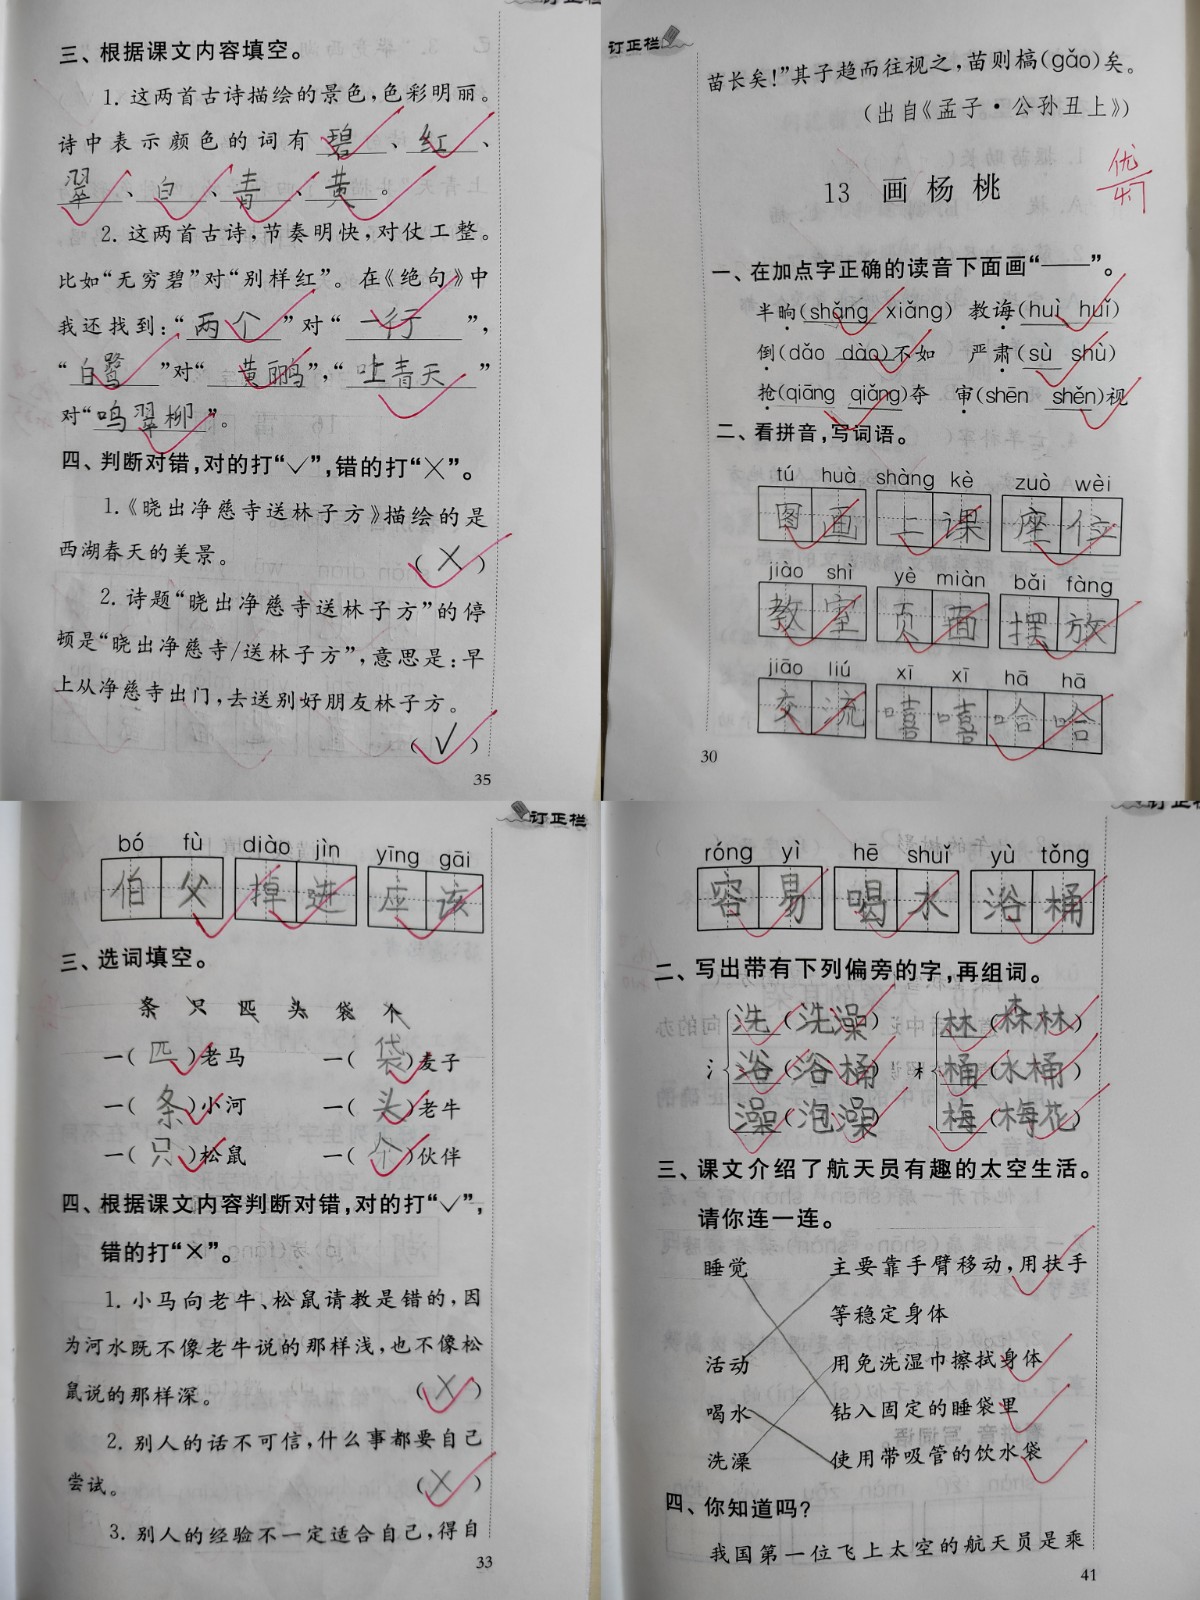 订正栏
三、根据课文内容填空。
1. 这两首古诗描绘的景色,色彩明丽。
诗中表示颜色的词有 碧 、 红 、
翠 、 白 、 青 、 黄 。
2. 这两首古诗,节奏明快,对仗工整。
比如“无穷碧”对“别样红”。在《绝句》中
我还找到:“ 两个 ”对“ 一行 ”,
“ 白鹭 ”对“ 黄鹂 ”,“ 吐青天 ”
对“ 鸣翠柳 ”。
四、判断对错,对的打“√”,错的打“×”。
1.《晓出净慈寺送林子方》描绘的是
西湖春天的美景。 ( × )
2. 诗题“晓出净慈寺送林子方”的停
顿是“晓出净慈寺/送林子方”,意思是:早
上从净慈寺出门,去送别好朋友林子方。
( √ )
35
订正栏
苗长矣!”其子趋而往视之,苗则槁(gǎo)矣。
(出自《孟子·公孙丑上》)
优
13 画杨桃
一、在加点字正确的读音下面画“——”。
半晌(shǎng xiǎng) 教诲(huì huǐ)
倒(dǎo dào)不如 严肃(sù shù)
抢(qiāng qiǎng)夺 审(shēn shěn)视
二、看拼音,写词语。
tú huà shàng kè zuò wèi
图画 上课 座位
jiào shì yè miàn bǎi fàng
教室 页面 摆放
jiāo liú xī xī hā hā
交流 嘻嘻哈哈
30
订正栏
bó fù diào jìn yīng gāi
伯父 掉进 应该
三、选词填空。
条 只 匹 头 袋 个
一( 匹 )老马 一( 袋 )麦子
一( 条 )小河 一( 头 )老牛
一( 只 )松鼠 一( 个 )伙伴
四、根据课文内容判断对错,对的打“√”,
错的打“×”。
1. 小马向老牛、松鼠请教是错的,因
为河水既不像老牛说的那样浅,也不像松
鼠说的那样深。 ( × )
2. 别人的话不可信,什么事都要自己
尝试。 ( × )
3. 别人的经验不一定适合自己,得自
33
订正栏
róng yì hē shuǐ yù tǒng
容易 喝水 浴桶
二、写出带有下列偏旁的字,再组词。
洗 (洗澡) 林 (森林)
氵 浴 (浴桶) 木 桶 (水桶)
澡 (泡澡) 梅 (梅花)
三、课文介绍了航天员有趣的太空生活。
请你连一连。
睡觉 主要靠手臂移动,用扶手
等稳定身体
活动 用免洗湿巾擦拭身体
喝水 钻入固定的睡袋里
洗澡 使用带吸管的饮水袋
四、你知道吗?
我国第一位飞上太空的航天员是乘
41